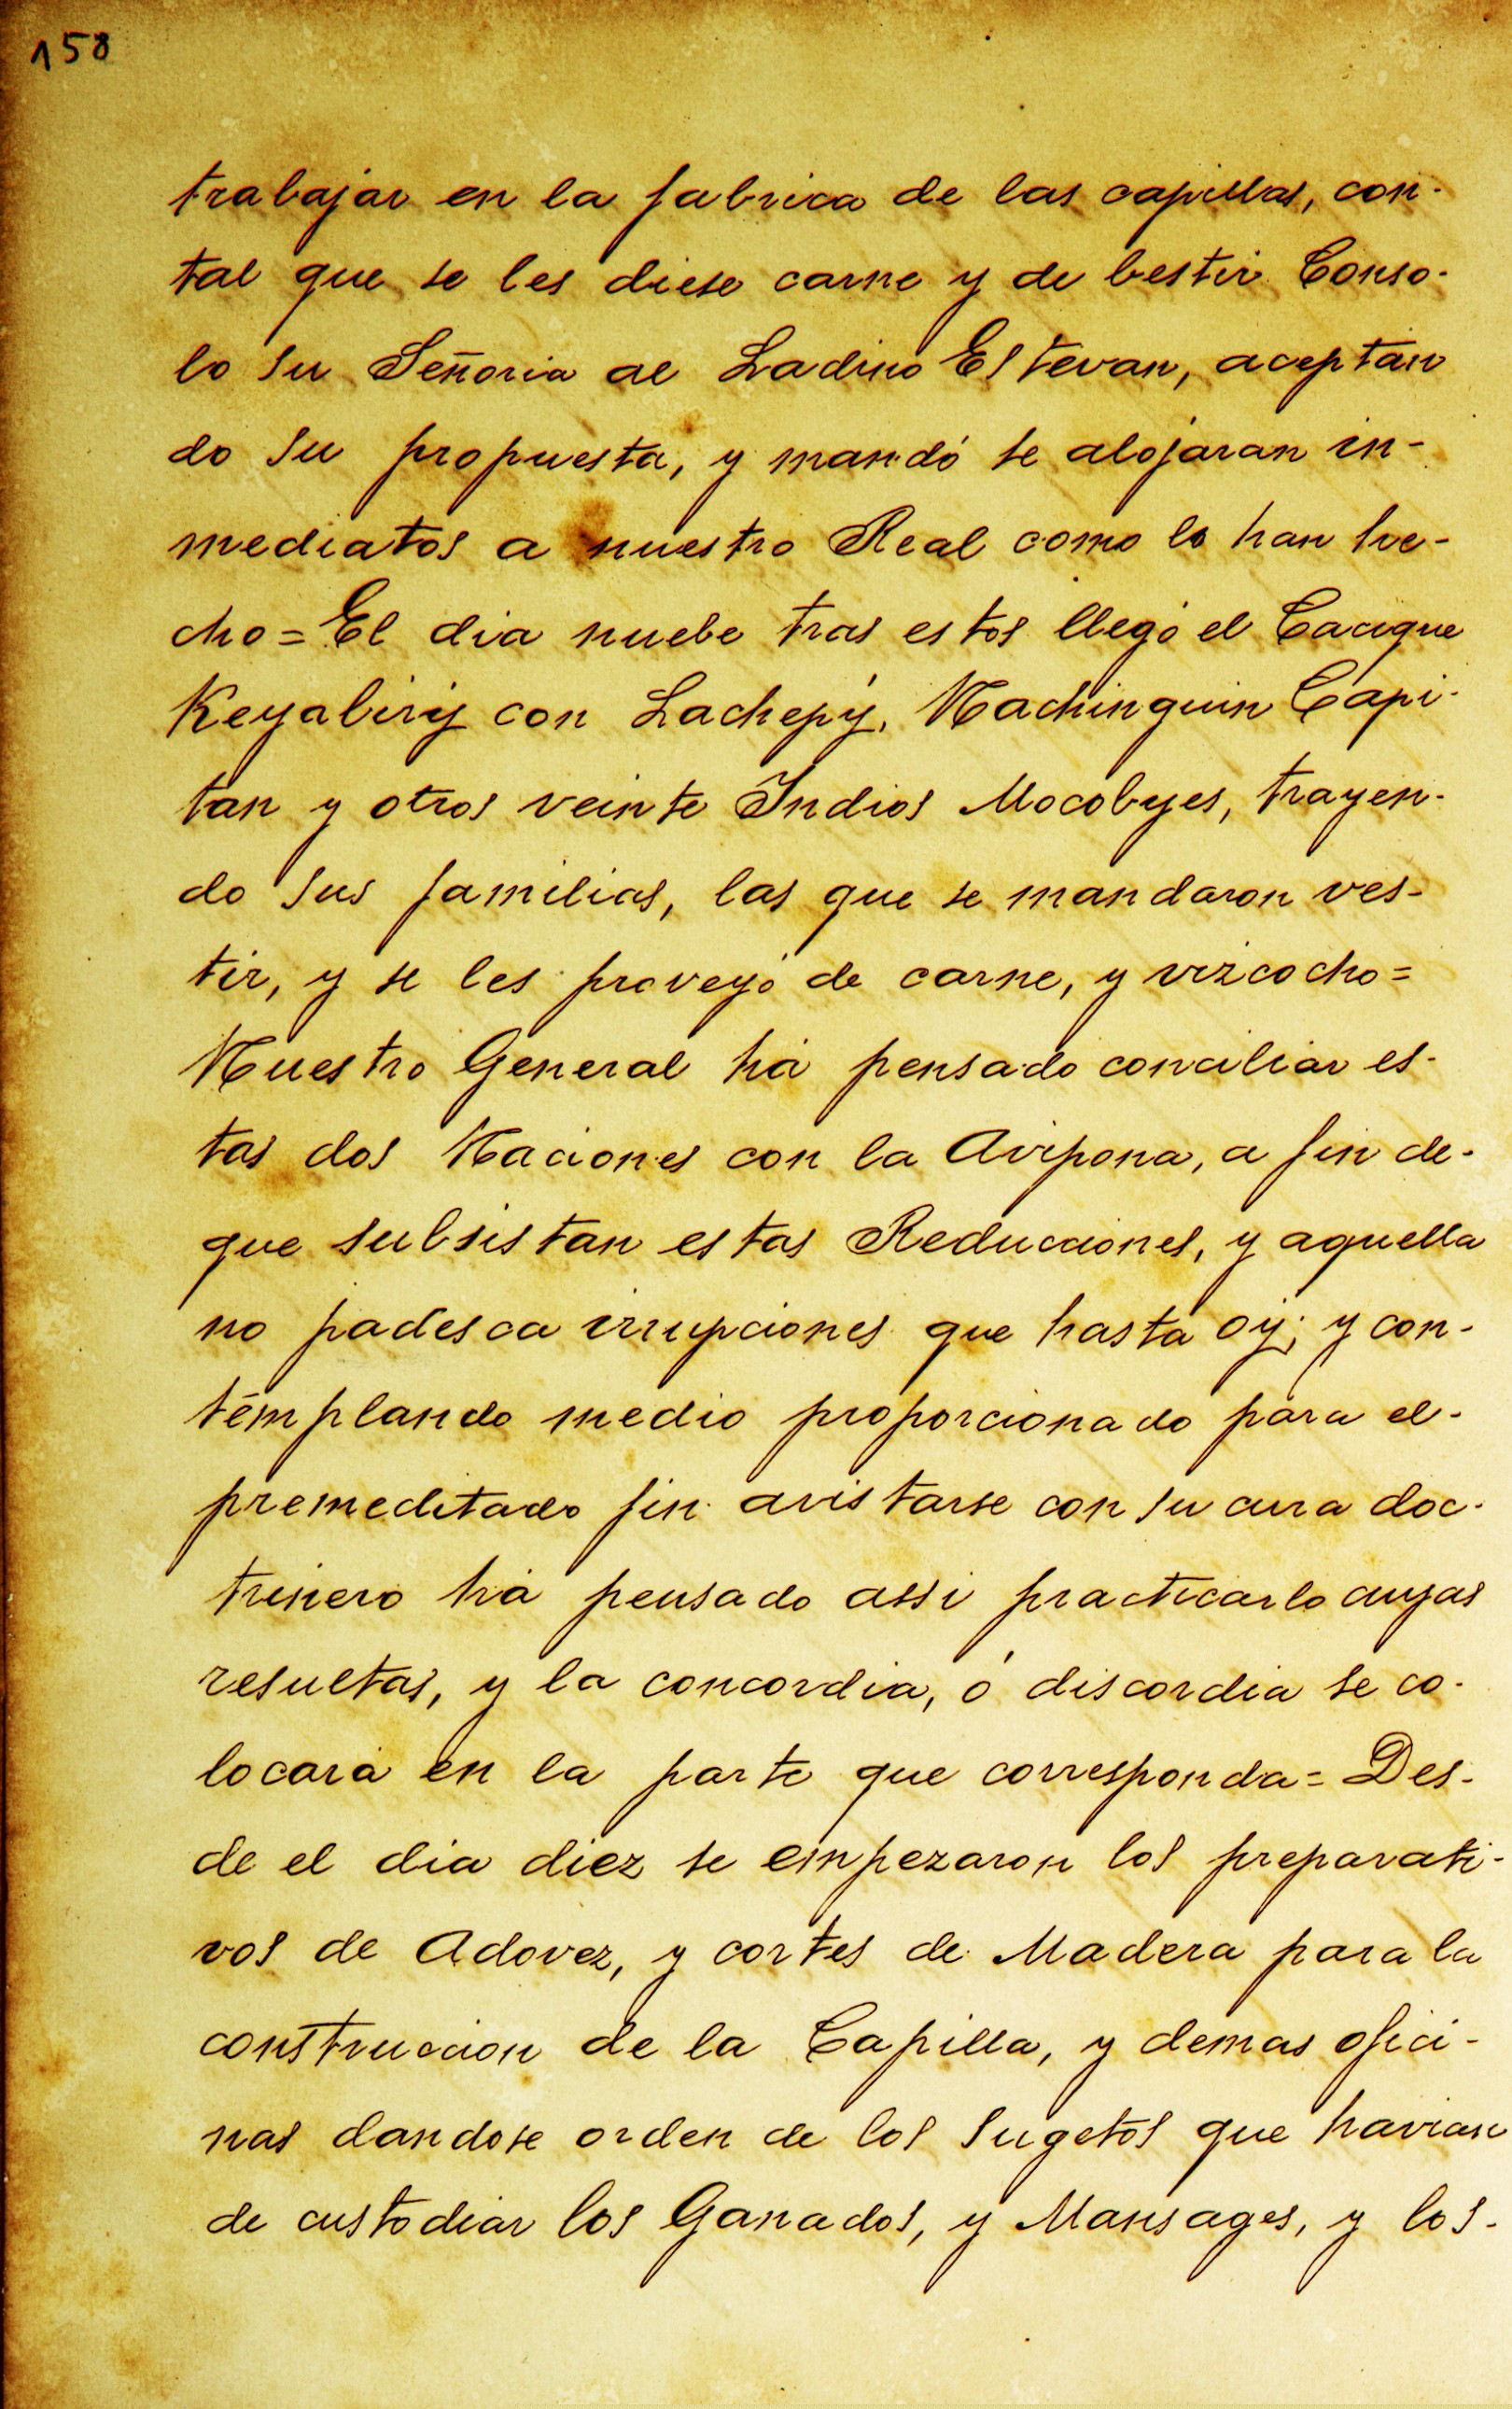 158
trabajar en la fabrica de las capillas, con-
tal que se les diese carne y de bestir. Conso-
lo su Señoria al Ladino Estevan, aceptan
do su propuesta, y mandó se alojaran in-
mediatos a nuestro Real como lo han he-
cho = El dia nuebe tras estos llegó el Cacique
Keyabiriy con Lachepý, Nachinguin Capi-
tan y otros veinte Indios Mocobyes, trayen-
do sus familias, las que se mandaron ves-
tir, y se les proveyó de carne, y vizcocho =
Nuestro General há pensado conciliar es-
tas dos Naciones con la Avipona, a fin de-
que subsistan estas Reducciones, y aquella
no padesca irrupciones que hasta oy; y con-
templando medio proporcionado para el-
premeditado fin avistarse con su cura doc-
trinero há pensado assi practicarlo cuyas
resultas, y la concordia, ó discordia se co-
locará en la parte que corresponda = Des-
de el dia diez se empezaron los preparati-
vos de Adovez, y cortes de Madera para la
construccion de la Capilla, y demas ofici-
nas dandose orden de los sugetos que havian
de custodiar los Ganados, y Mansages, y los-